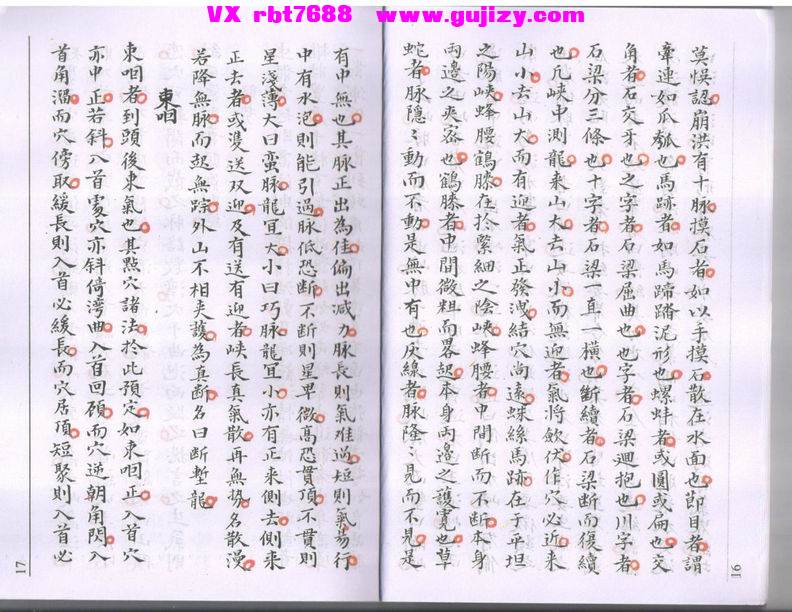 VX rbt7688 www.gujizy.com
莫悞認崩洪有十脉摸石者如以手摸石散在水面也節目者謂
牽連如瓜瓠也馬跡者如馬蹄踏泥形也螺蚌者或圓或匾也交
角者石交牙也之字者石梁屈曲也也字者石梁廻抱也川字者
石梁分三條也十字者石梁一直一橫也斷續者石梁断而復續
也凡峽中測龍来山大去山小而無迎者氣將歛伏作穴必近来
山小去山大而有迎者氣正發洩結穴尚遠蛛絲馬跡在于平坦
之陽峽蜂腰鶴膝在於緊細之陰峽蜂腰者中間断而不断本身
兩邊之夾宻也鶴膝者中間微粗而畧起本身兩邊之護寬也草
蛇者脉隱〻動而不動是無中有也灰線者脉隆〻見而不見是
16
有中無也其脉正出為佳偏出减力脉長則氣难過短則氣易行
中有水泡則能引過脉低恐断不断則星卑微高恐貫頂不貫則
星淺薄大曰蛮脉龍宜大小曰巧脉龍宜小亦有正来側去側来
正去者或雙送双迎及有送有迎者峽長真氣散再無勢名散漫
若降無脉而起無踪外山不相夾護為真断名曰断塹龍
束咽
束咽者到頭後束氣也其點穴諸法於此預定如束咽正入首穴
亦中正若斜入首處穴亦斜倚灣曲入首回顧而穴逆朝角閃入
首角溜而穴傍取緩長則入首必緩長而穴居頂短聚則入首必
17